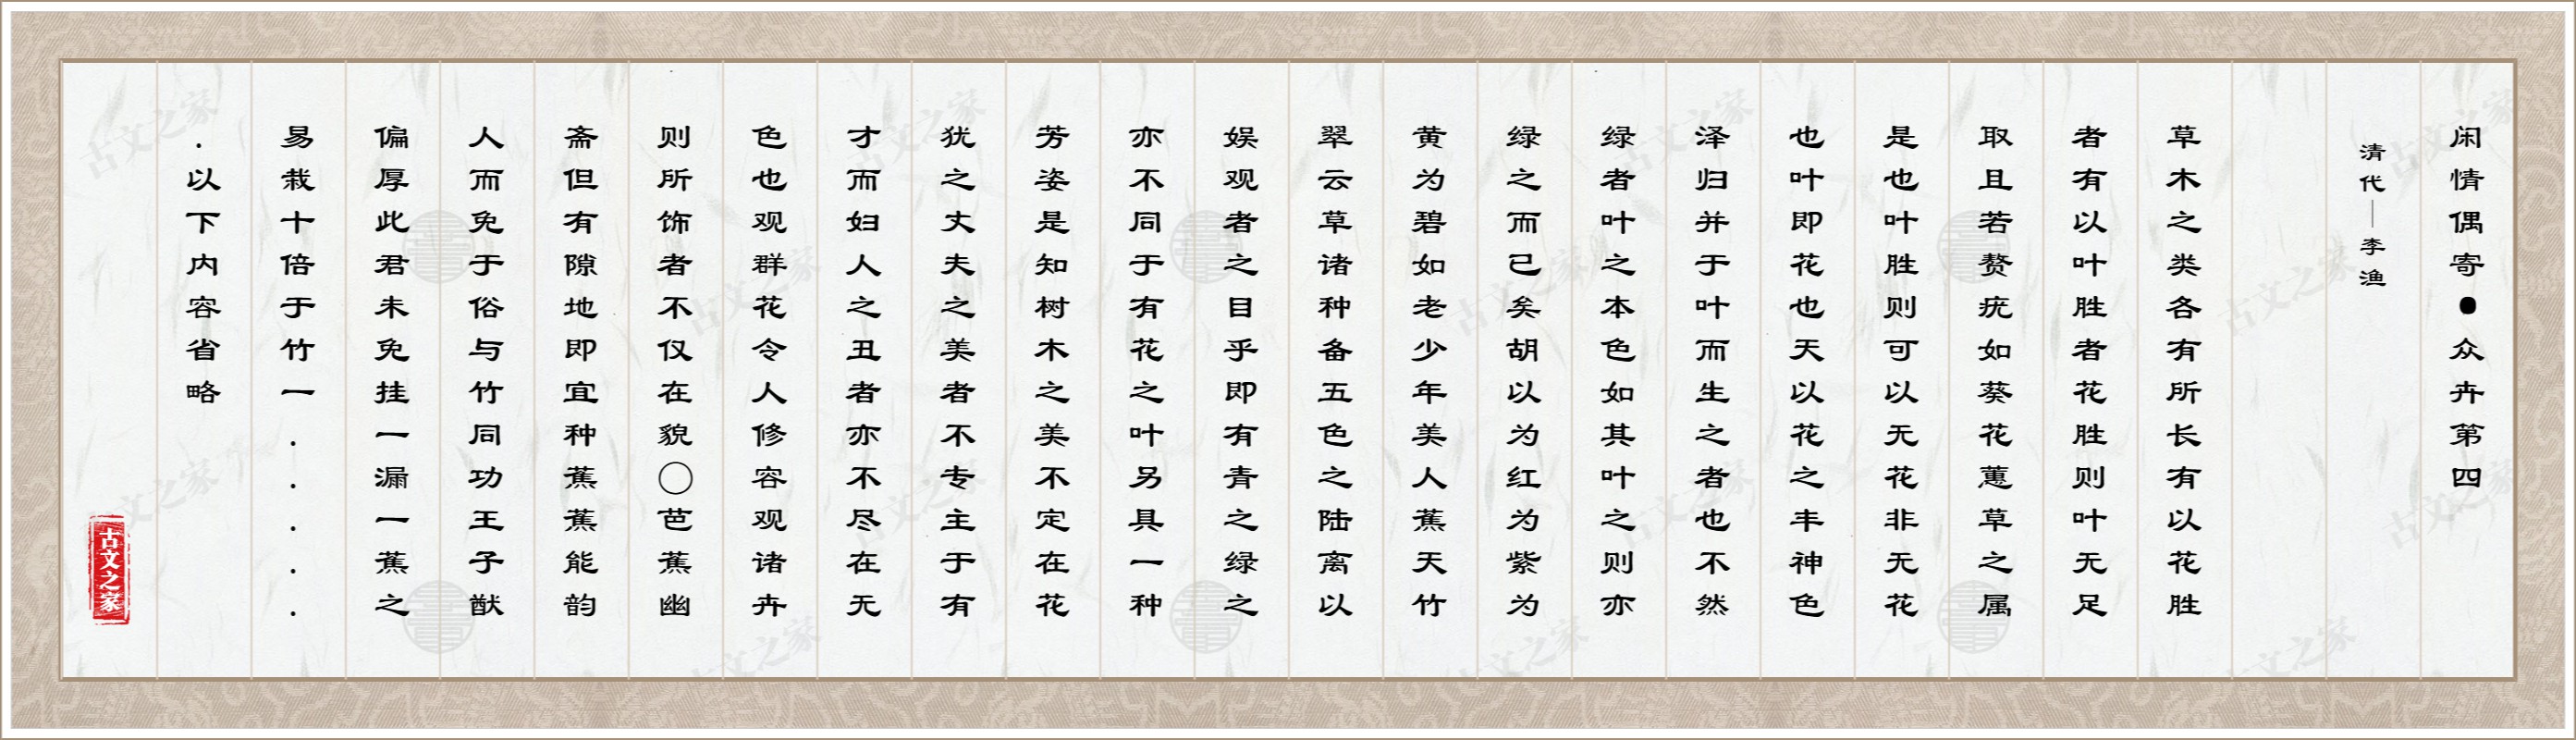 闲情偶寄●众卉第四
清代—李渔
草木之类各有所长有以花胜
者有以叶胜者花胜则叶无足
取且若赘疣如葵花蕙草之属
是也叶胜则可以无花非无花
也叶即花也天以花之丰神色
泽归并于叶而生之者也不然
绿者叶之本色如其叶之则亦
绿之而已矣胡以为红为紫为
黄为碧如老少年美人蕉天竹
翠云草诸种备五色之陆离以
娱观者之目乎即有青之绿之
亦不同于有花之叶另具一种
芳姿是知树木之美不定在花
犹之丈夫之美者不专主于有
才而妇人之丑者亦不尽在无
色也观群花令人修容观诸卉
则所饰者不仅在貌〇芭蕉幽
斋但有隙地即宜种蕉蕉能韵
人而免于俗与竹同功王子猷
偏厚此君未免挂一漏一蕉之
易栽十倍于竹一.....
.以下内容省略
古文之家